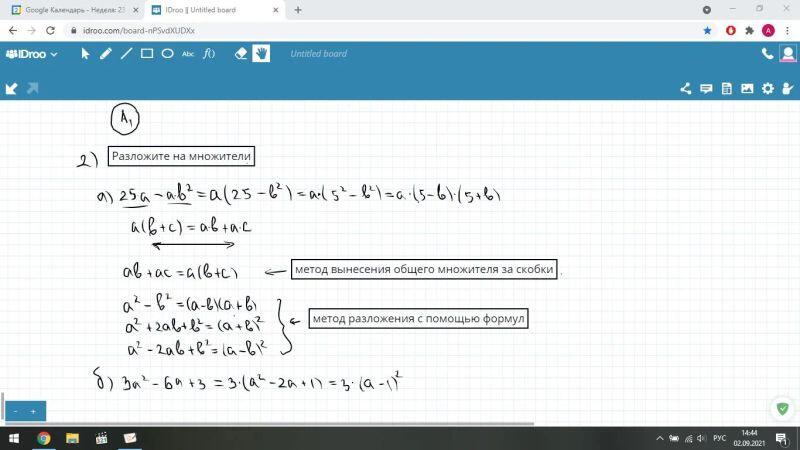 Google Календарь - Неделя: 23
IDroo || Untitled board
idroo.com/board-nPSvdXUDXx
IDroo
Abc f()
Untitled board
A₁
2) Разложите на множители
а) 25a - ab² = a(25 - b²) = a·(5² - b²) = a·(5-b)·(5+b)
a(b+c) = a·b + a·c
ab + ac = a(b+c) ← метод вынесения общего множителя за скобки .
a² - b² = (a-b)(a+b)
a² + 2ab + b² = (a+b)²
← метод разложения с помощью формул
a² - 2ab + b² = (a-b)²
б) 3a² - 6a + 3 = 3·(a² - 2a + 1) = 3·(a-1)²
- +
РУС
14:44
02.09.2021